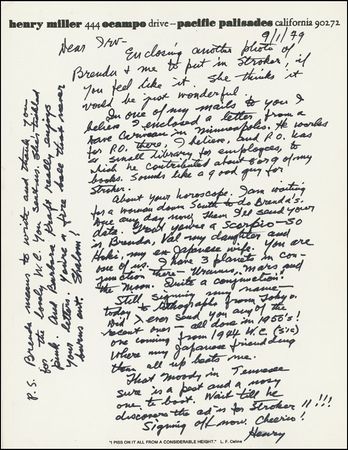 henry miller 444 ocampo drive -- pacific palisades california 90272
9/11/79
Dear Irv-
Enclosing another photo of
Brenda & me to put in Stroker, if
you feel like it. She thinks it
would be just wonderful.
In one of my mails to you I
believe I enclosed a letter from a
in Minneapolis. He works
for P.O. there, I believe, and P.O. has
a small library for employees, to
which he contributed about 60 of my
books. Sounds like a good guy for
Stroker.
About your horoscope. I am waiting
for a woman down South to do Brenda's.
Due any day now. Then I'll send your
date. You're a Scorpio - so
is Brenda, Val my daughter and
Hoki, my ex Japanese wife. You are
one of us. I have 3 planets in con-
junction there - Uranus, Mars and
the Moon. Quite a conjunction!
Still signing my name -
today to lithographs from Tokyo.
Did I ever send you any of the
recent ones - all done in 1950's!
one coming from 1944 W.C. (size)
Where my Japanese friend
them all up beats me.
That Moody in Tennessee
sure is a poet and a
one to boot. Wait till he
discovers the ad is for Stroker!!!!
Signing off now. Cheerio!
Henry
P.S. Brenda means to write and thank you
for the lovely W.C. you sent us. She's tickled
pink. And Barbara Kraft really enjoys
your letters. You're a fire ball that never
burns out. Shalom!
"I PISS ON IT ALL FROM A CONSIDERABLE HEIGHT." L. F. Celine